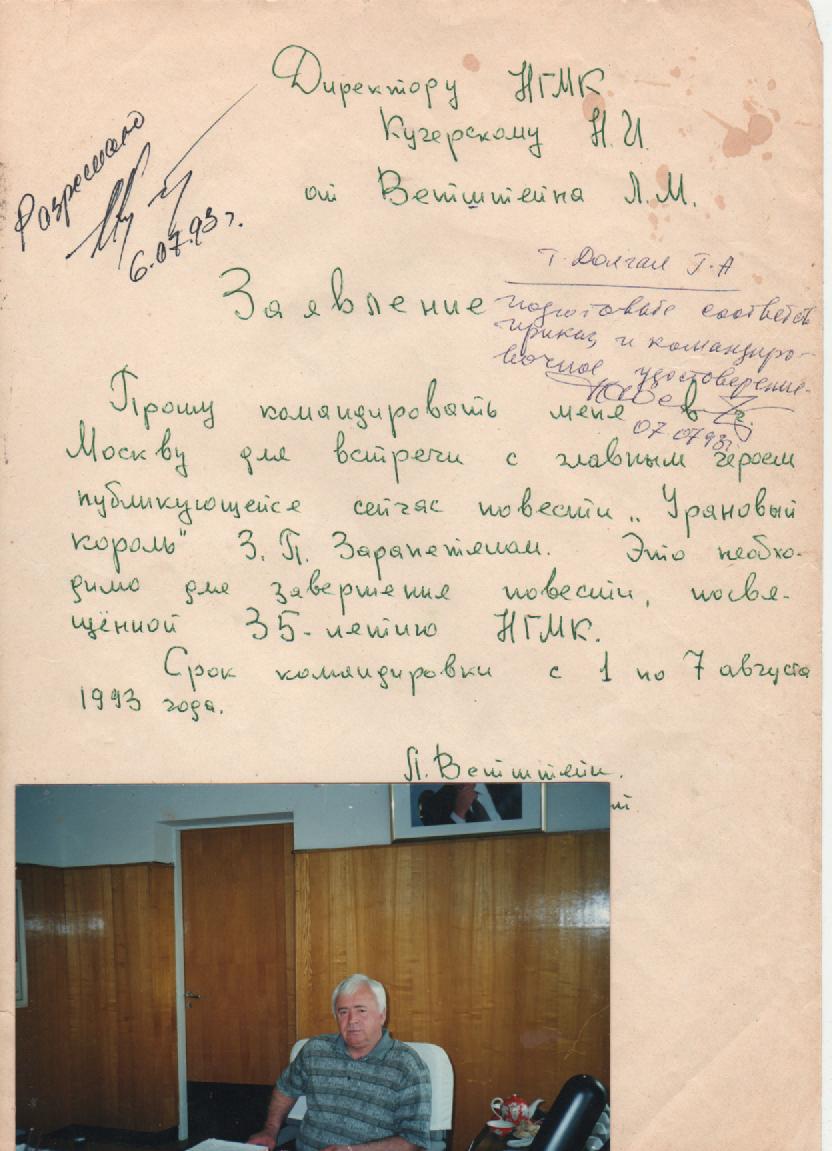 Директору НГМК
Кучерскому Н.И.
от Ветштейна Л.М.
Разрешаю
6.07.93 г.
Заявление
т. Долган Г.А
подготовьте соответств
приказ и командиро-
вочное удостоверение.
07.07.93г.
Прошу командировать меня в г.
Москву для встречи с главным героем
публикующейся сейчас повести „Урановый
король" З.П. Зарапетяном. Это необхо-
димо для завершения повести, посвя-
щённой 35-летию НГМК.
Срок командировки с 1 по 7 августа
1993 года.
Л. Ветштейн.